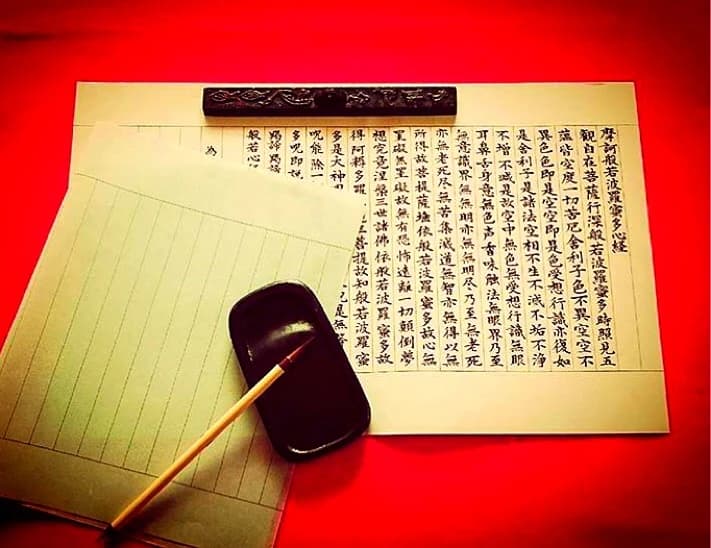 摩訶般若波羅蜜多心経
観自在菩薩行深般若波羅蜜多時照見五
蘊皆空度一切苦厄舎利子色不異空空不
異色色即是空空即是色受想行識亦復如
是舎利子是諸法空相不生不滅不垢不浄
不増不減是故空中無色無受想行識無眼
耳鼻舌身意無色声香味触法無眼界乃至
無意識界無無明亦無無明尽乃至無老死
亦無老死尽無苦集滅道無智亦無得以無
所得故菩提薩埵依般若波羅蜜多故心無
罣礙無罣礙故無有恐怖遠離一切顛倒夢
想究竟涅槃三世諸佛依般若波羅蜜多故
得阿耨多羅三菩提故知般若波羅蜜
多是大神是無
呪能除一
多呪即説
羯諦羯諦
般若心経
為